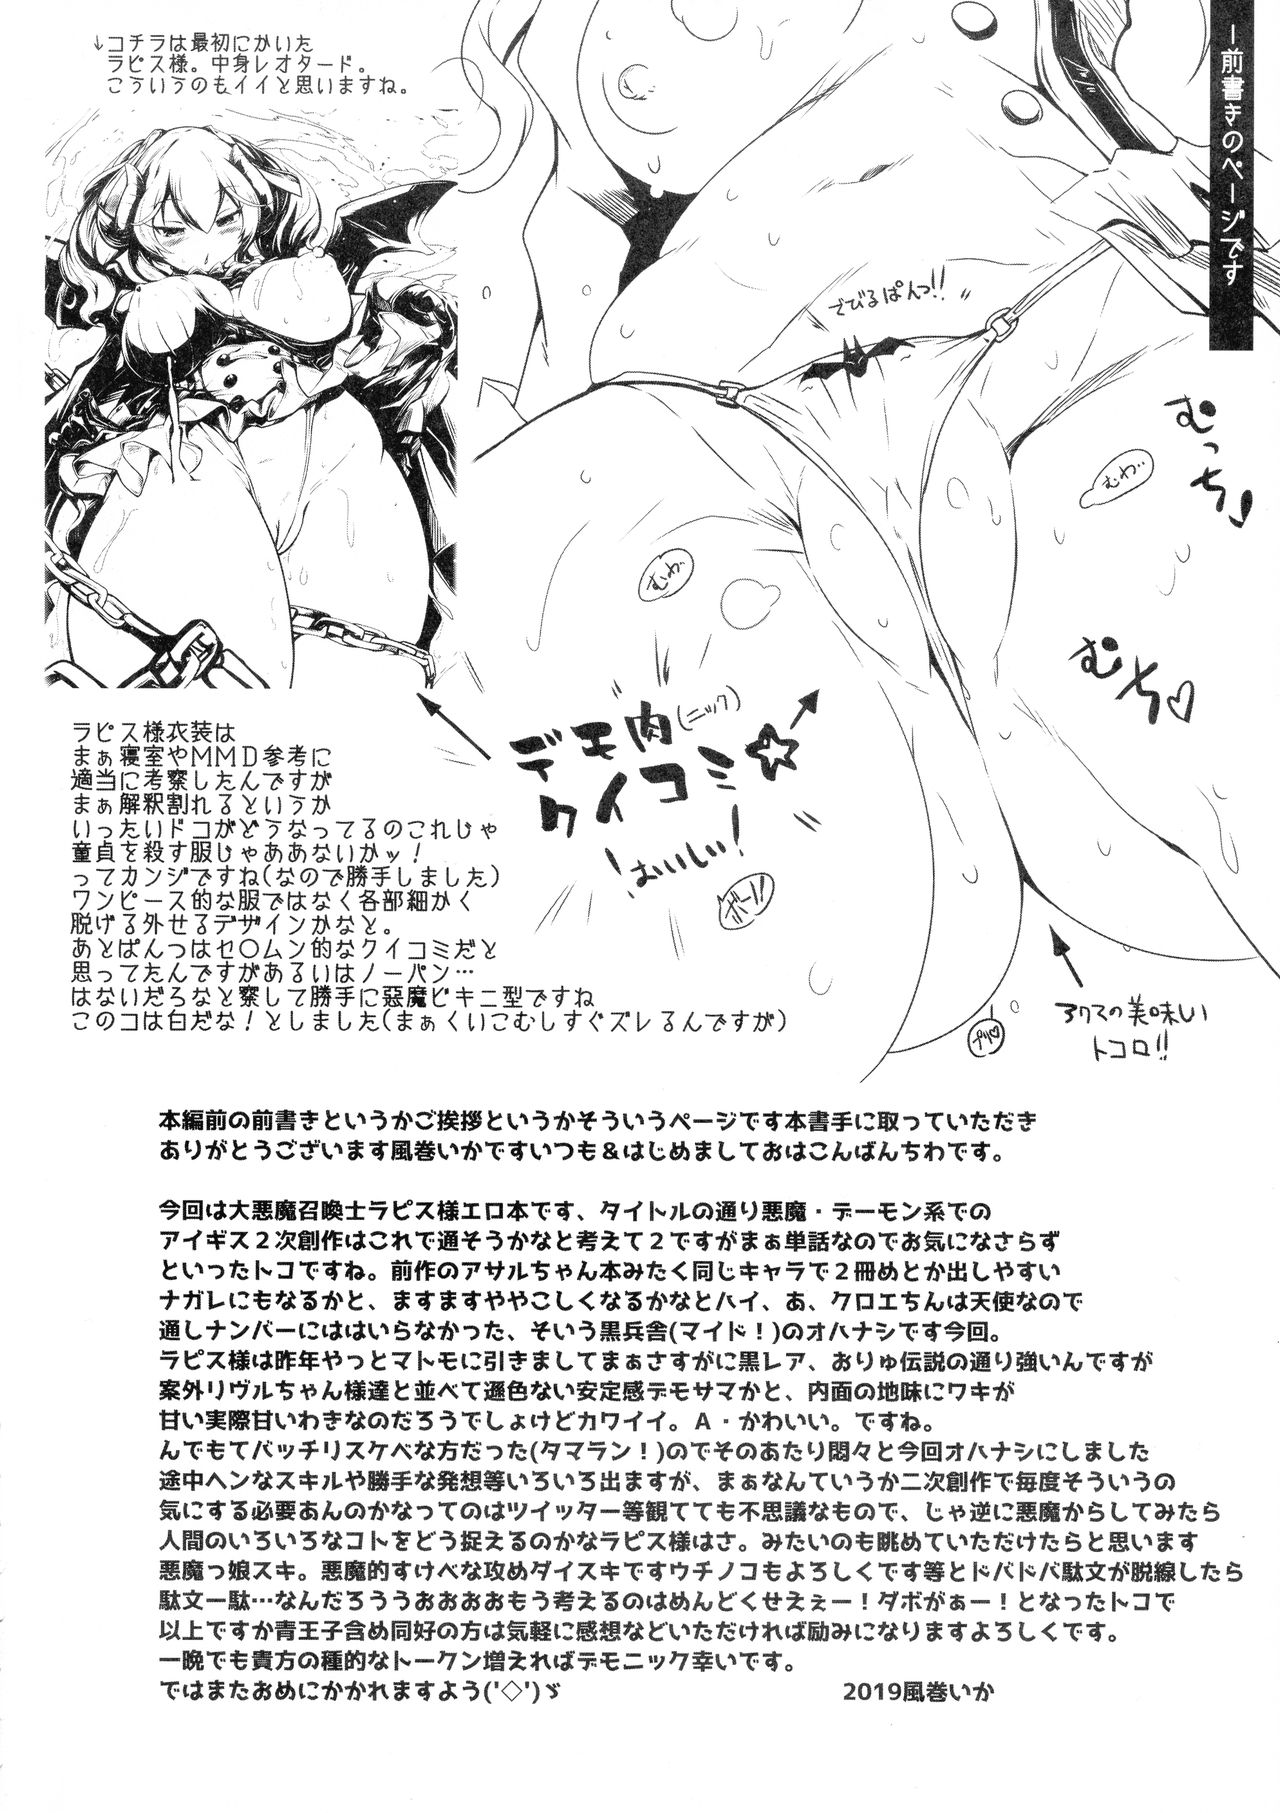 ー前書きのページです
↓コチラは最初にかいた
ラピス様。中身レオタード。
こういうのもイイと思いますね。
でびるぱんっ!!
むっち♪
むわ゛
むわ゛
むちっ♡
デモ肉(ニック)
クイコミ☆
!おいしい!
ボー!!
アクマの美味しい
トコロ!!
ラピス様衣装は
まぁ寝室やMMD参考に
適当に考察したんですが
まぁ解釈割れるというか
いったいドコがどうなってるのこれじゃ
童貞を殺す服じゃああないかッ!
ってカンジですね(なので勝手しました)
ワンピース的な服ではなく各部細かく
脱げる外せるデザインかなと。
あとぱんつはセ〇ムン的なクイコミだと
思ってたんですがあるいはノーパン…
はないだろなと察して勝手に惡魔ビキニ型ですね
このコは白だな!としました(まぁくいこむしすぐズレるんですが)
本編前の前書きというかご挨拶というかそういうページです本書手に取っていただき
ありがとうございます風巻いかですいつも＆はじめましておはこんばんちわです。
今回は大悪魔召喚士ラピス様エロ本です、タイトルの通り悪魔・デーモン系での
アイギス２次創作はこれで通そうかなと考えて２ですがまぁ単話なのでお気になさらず
といったトコですね。前作のアサルちゃん本みたく同じキャラで２冊めとか出しやすい
ナガレにもなるかと、ますますややこしくなるかなとハイ、あ、クロエちんは天使なので
通しナンバーにははいらなかった、そいう黒兵舎(マイド！)のオハナシです今回。
ラピス様は昨年やっとマトモに引きましてまぁさすがに黒レア、おりゅ伝説の通り強いんですが
案外リヴルちゃん様達と並べて遜色ない安定感デモサマかと、内面の地味にワキが
甘い実際甘いわきなのだろうでしょけどカワイイ。A・かわいい。ですね。
んでもてバッチリスケベな方だった(タマラン！)のでそのあたり悶々と今回オハナシにしました
途中ヘンなスキルや勝手な発想等いろいろ出ますが、まぁなんていうか二次創作で毎度そういうの
気にする必要あんのかなってのはツイッター等観てても不思議なもので、じゃ逆に悪魔からしてみたら
人間のいろいろなコトをどう捉えるのかなラピス様はさ。みたいのも眺めていただけたらと思います
悪魔っ娘スキ。悪魔的すけべな攻めダイスキですウチノコもよろしくです等とドバドバ駄文が脱線したら
駄文一駄…なんだろううおおおおもう考えるのはめんどくせえぇー！ダボがぁー！となったトコで
以上ですか青王子含め同好の方は気軽に感想などいただければ励みになりますよろしくです。
一晩でも貴方の種的なトークン増えればデモニック幸いです。
ではまたおめにかかれますよう('◇')ゞ
2019風巻いか